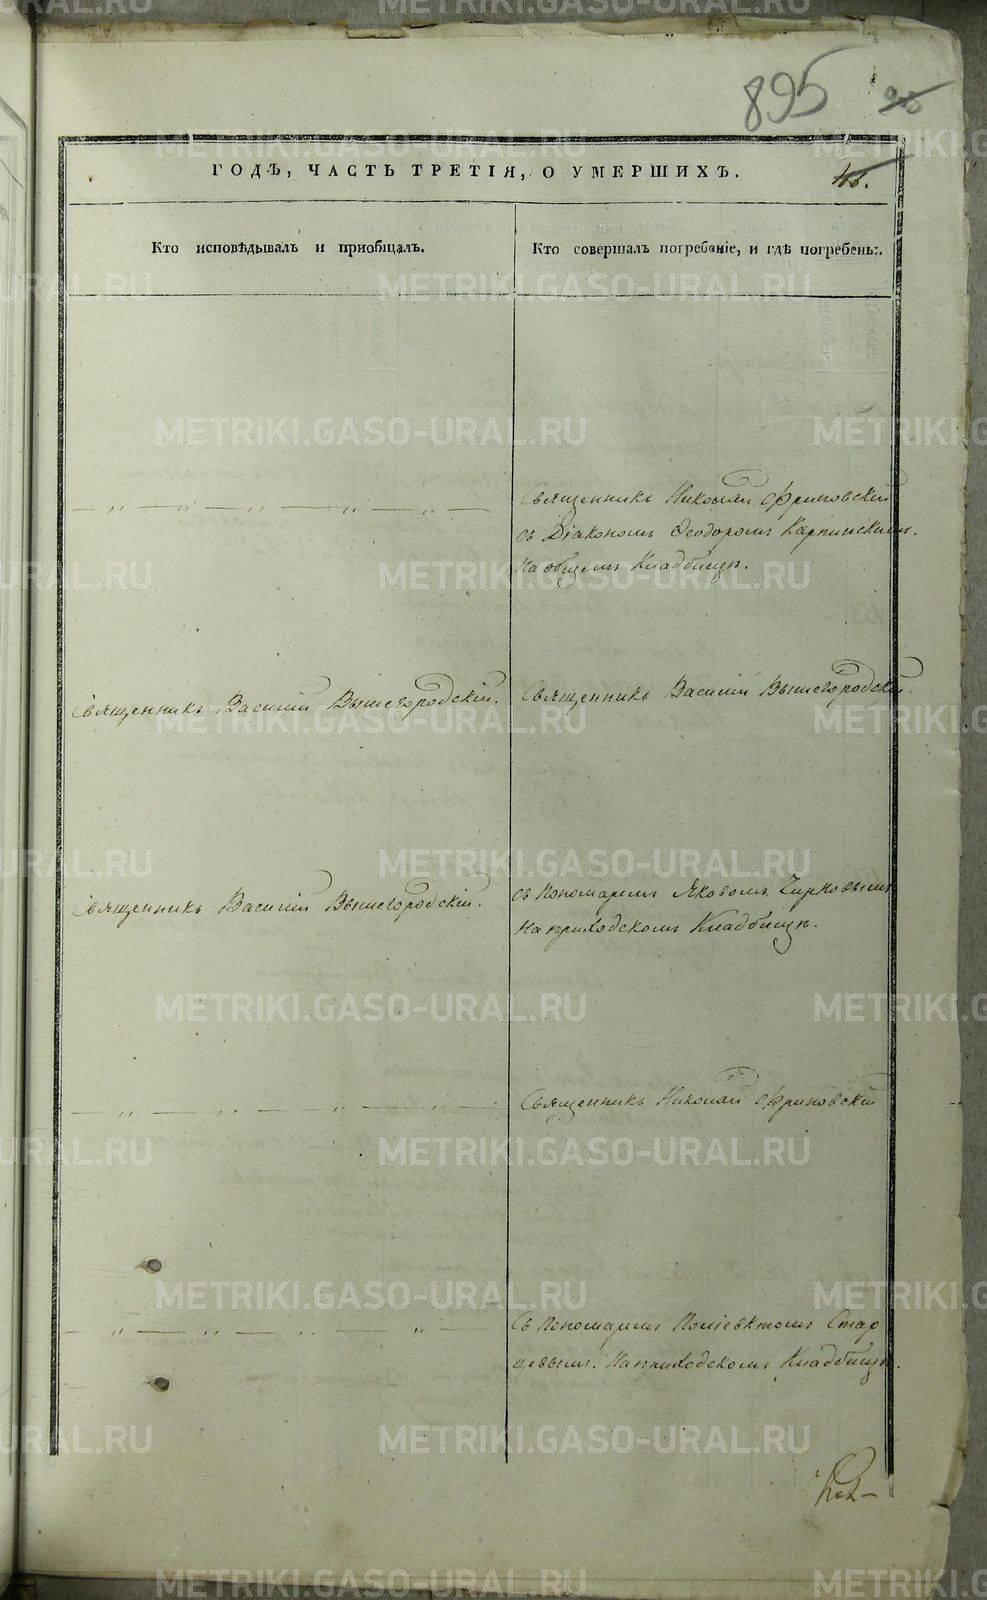 895
ГОДЪ, ЧАСТЬ ТРЕТІЯ, О УМЕРШИХЪ.
Кто исповѣдывалъ и пріобщалъ.
Кто совершалъ погребеніе, и гдѣ погребены.
Священникъ Николай Фриновскій
съ Діакономъ Ѳеодоромъ Карпинскимъ.
На общемъ Кладбищѣ.
Священникъ Василій Вышегородскій.
Священникъ Василій Вышегородскій.
Священникъ Василій Вышегородскій.
съ Пономаремъ Яковомъ Чирковымъ
На приходскомъ Кладбищѣ.
Священникъ Николай Фриновскій
Съ Пономаремъ Поліевктомъ Стар
цевымъ. На приходскомъ Кладбищѣ.
METRIKI.GASO-URAL.RU